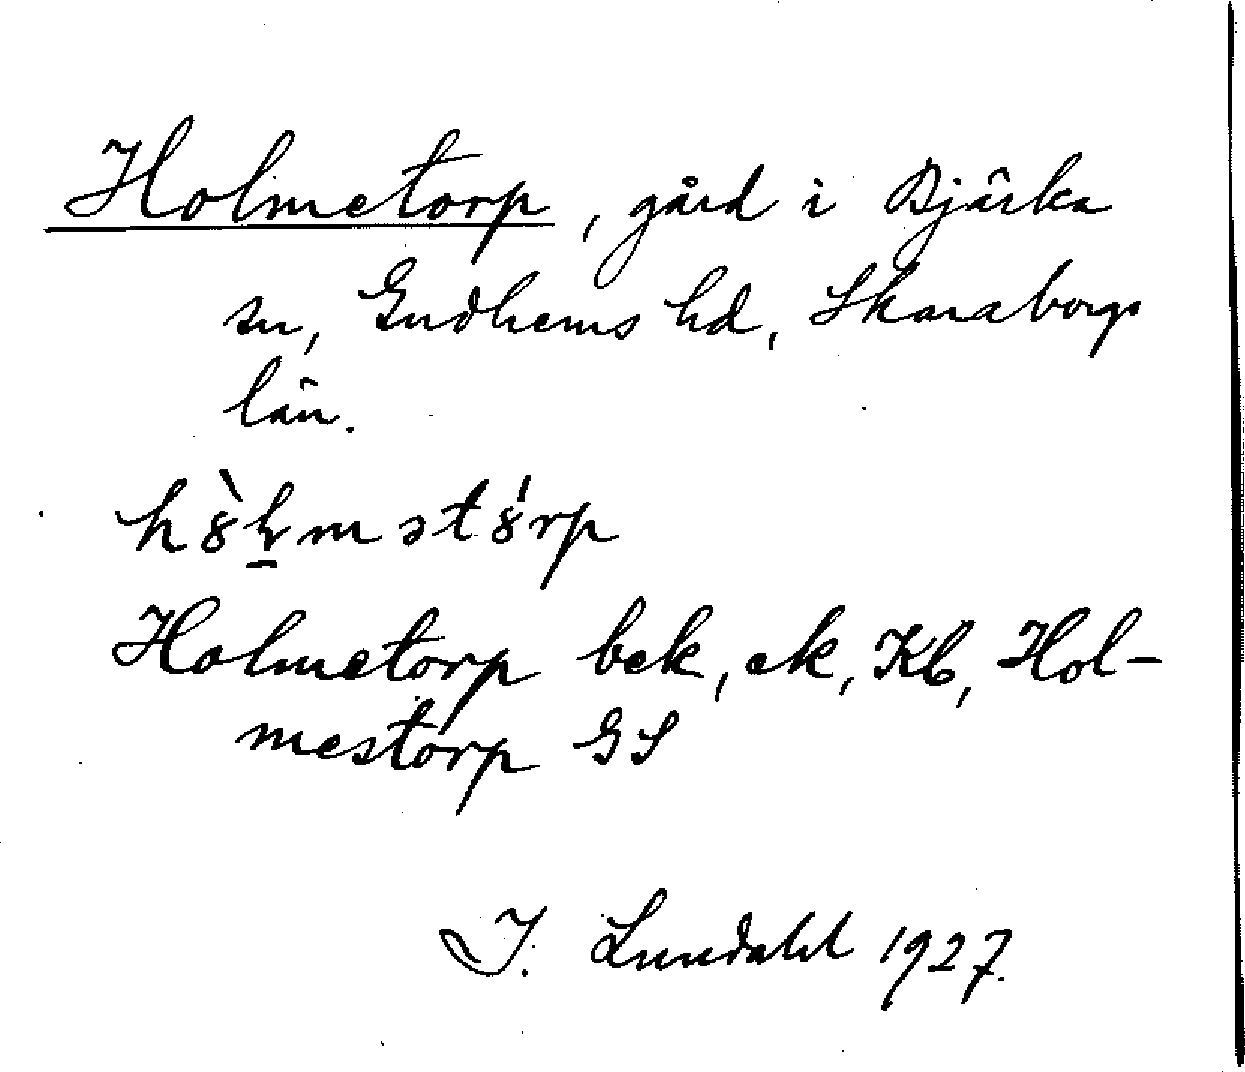 Holmetorp, gård i Bjärka
sn, Gudhems hd, Skaraborgs
län.
Holmetorp bek, ek, Kb, Hol-
mestorp GS
I. Lundahl 1927.